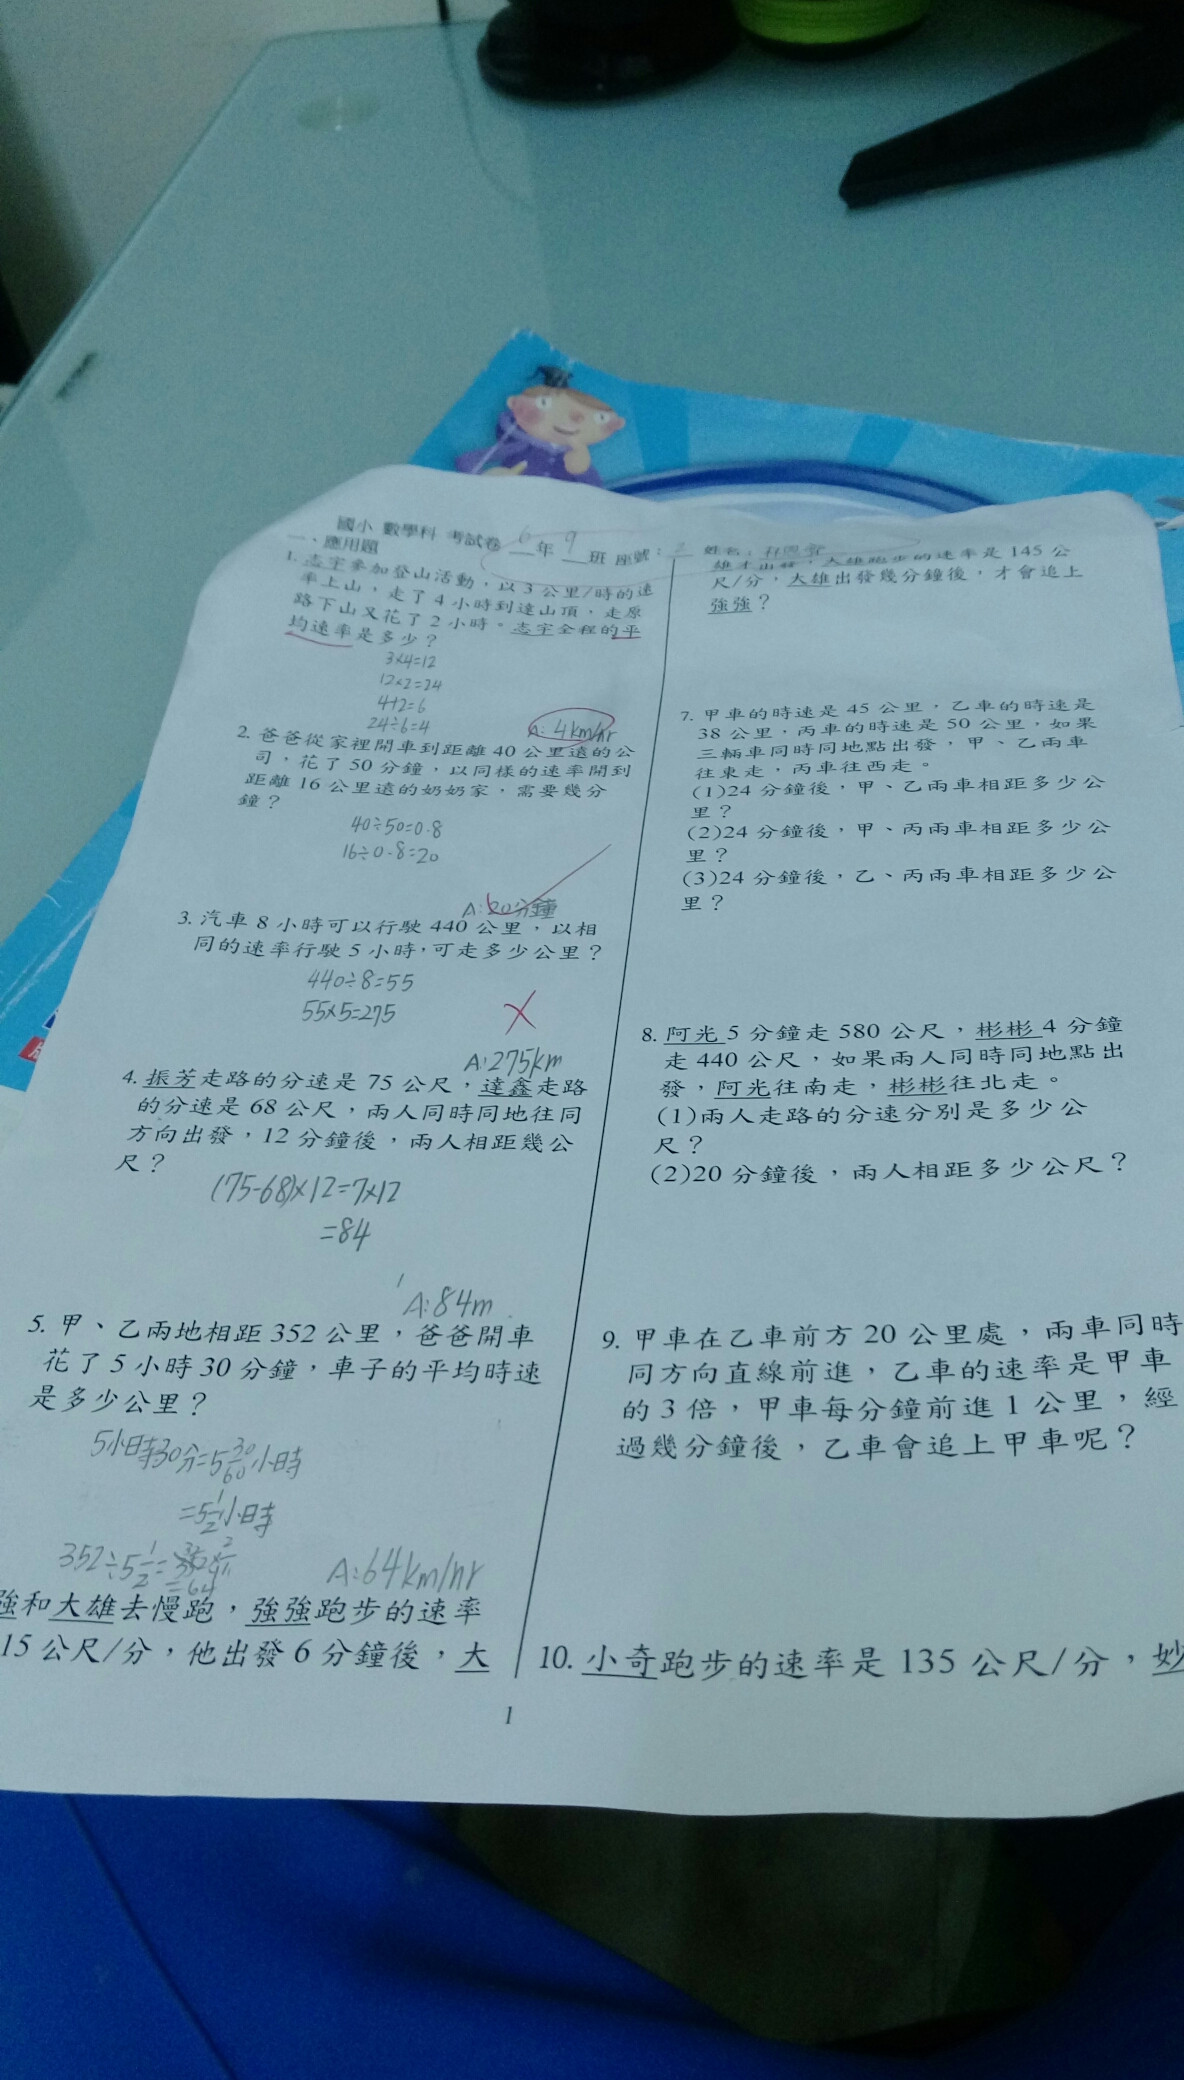 國小 數學科 考試卷 6年 9班 座號：2 姓名：
一、應用題
1. 志宇參加登山活動，以 3 公里/時的速
率上山，走了 4 小時到達山頂，走原
路下山又花了 2 小時。志宇全程的平
均速率是多少？
3×4=12
12×2=24
4+2=6
24÷6=4
A: 4km/hr
2. 爸爸從家裡開車到距離 40 公里遠的公
司，花了 50 分鐘，以同樣的速率開到
距離 16 公里遠的奶奶家，需要幾分
鐘？
40÷50=0.8
16÷0.8=20
A:20分鐘
3. 汽車 8 小時可以行駛 440 公里，以相
同的速率行駛 5 小時，可走多少公里？
440÷8=55
55×5=275
A:275km
4. 振芳走路的分速是 75 公尺，達鑫走路
的分速是 68 公尺，兩人同時同地往同
方向出發，12 分鐘後，兩人相距幾公
尺？
(75-68)×12=7×12
=84
A:84m
5. 甲、乙兩地相距 352 公里，爸爸開車
花了 5 小時 30 分鐘，車子的平均時速
是多少公里？
5小時30分=5 30/60 小時
=5 1/2 小時
352÷5 1/2=
=64
A:64km/hr
強和大雄去慢跑，強強跑步的速率
15 公尺/分，他出發 6 分鐘後，大
雄才出發，大雄跑步的速率是 145 公
尺/分，大雄出發幾分鐘後，才會追上
強強？
7. 甲車的時速是 45 公里，乙車的時速是
38 公里，丙車的時速是 50 公里，如果
三輛車同時同地點出發，甲、乙兩車
往東走，丙車往西走。
(1)24 分鐘後，甲、乙兩車相距多少公
里？
(2)24 分鐘後，甲、丙兩車相距多少公
里？
(3)24 分鐘後，乙、丙兩車相距多少公
里？
8. 阿光 5 分鐘走 580 公尺，彬彬 4 分鐘
走 440 公尺，如果兩人同時同地點出
發，阿光往南走，彬彬往北走。
(1)兩人走路的分速分別是多少公
尺？
(2)20 分鐘後，兩人相距多少公尺？
9. 甲車在乙車前方 20 公里處，兩車同時
同方向直線前進，乙車的速率是甲車
的 3 倍，甲車每分鐘前進 1 公里，經
過幾分鐘後，乙車會追上甲車呢？
10. 小奇跑步的速率是 135 公尺/分，妙
1